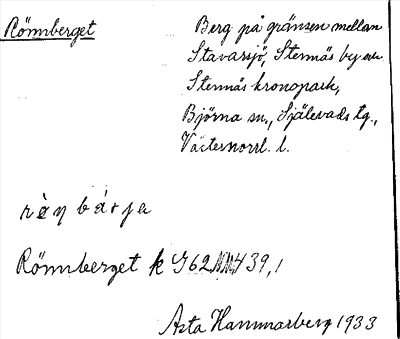 Rönnberget
Berg på gränsen mellan
Stavarsjö, Stennäs by och
Stennäs kronopark,
Björna sn., Själevads tg.,
Västernorrl. l.
Rönnberget k 439,1
Asta Hammarberg 1933